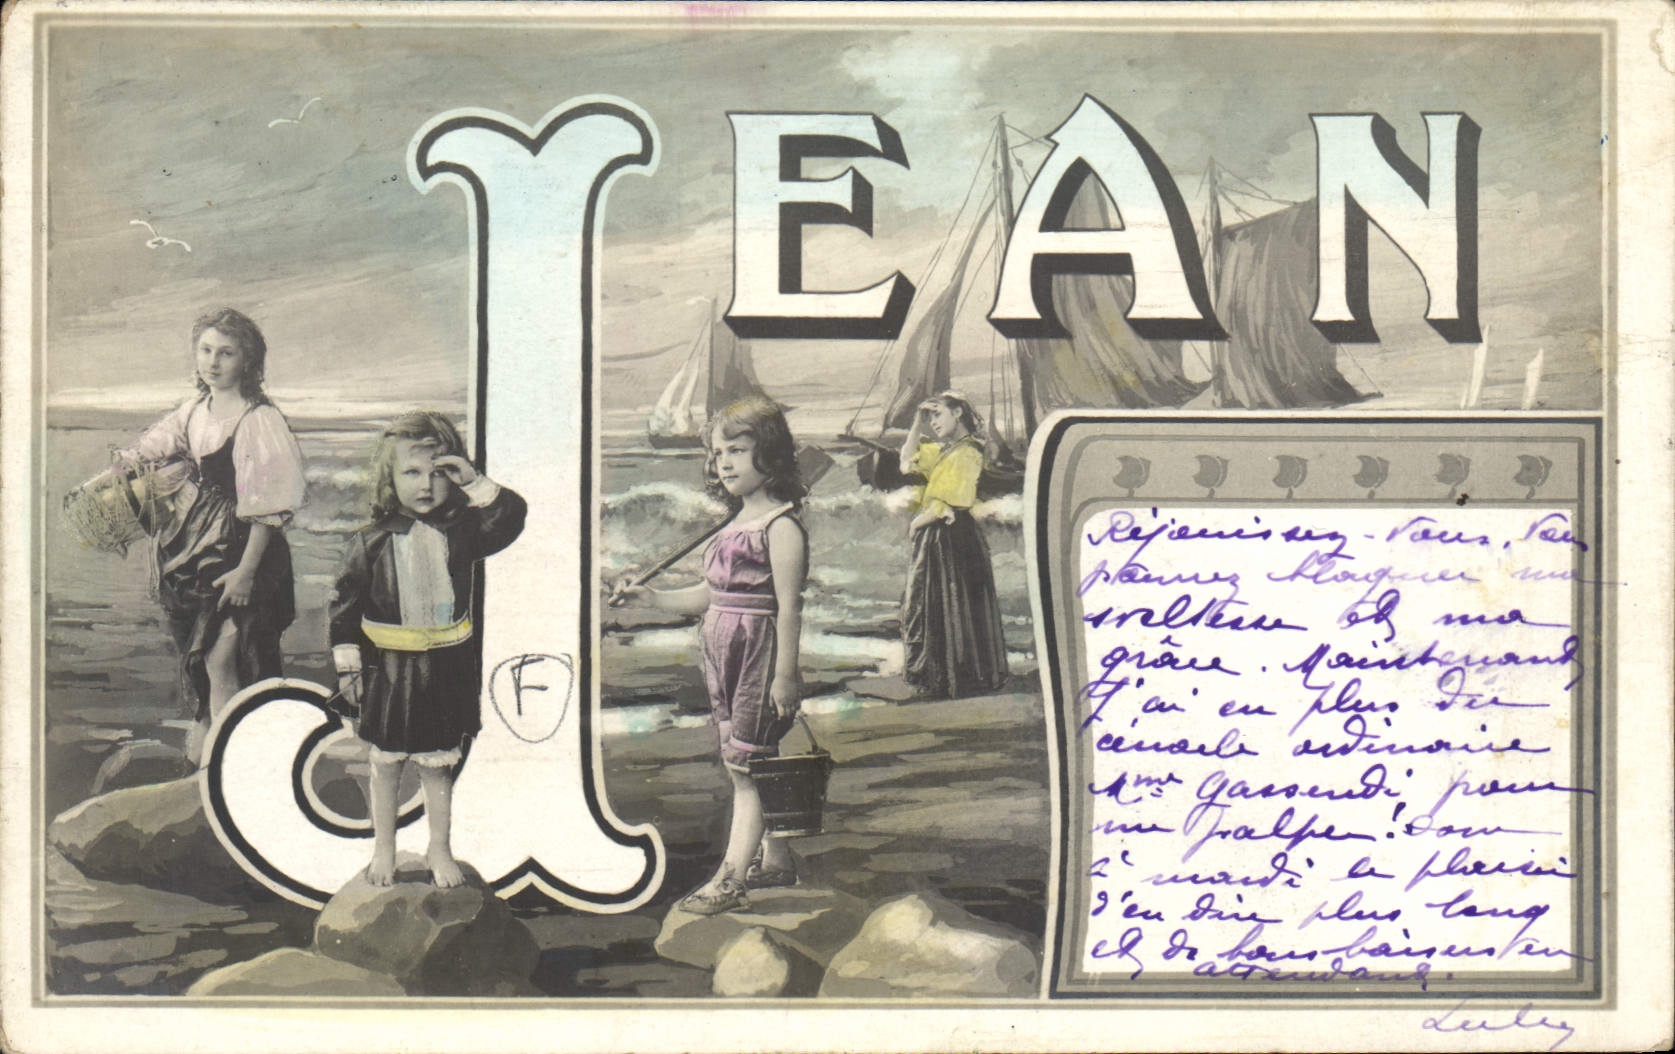 JEAN
F
Réjouissez-vous, vous
pourrez blaguer ma
sveltesse et ma
grâce. Maintenant
j'ai en plus du
cénacle ordinaire
Mme Gassendi pour
me palper! Donc
à mardi le plaisir
d'en dire plus long
et de bons baisers en
attendant.